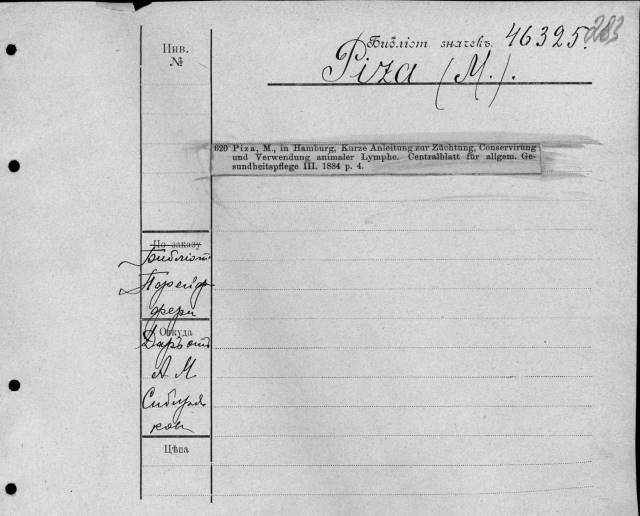 283
Инв.
№
Библіот. значекъ 46325.
Piza (M.).
620 Piza, M., in Hamburg, Kurze Anleitung zur Züchtung, Conservirung
und Verwendung animaler Lymphe. Centralblatt für allgem. Ge-
sundheitspflege III. 1884 p. 4.
По заказу
Библіот
Порейф
фера
Откуда
Даръ отъ
А М
Сибиря
кова
Цѣна